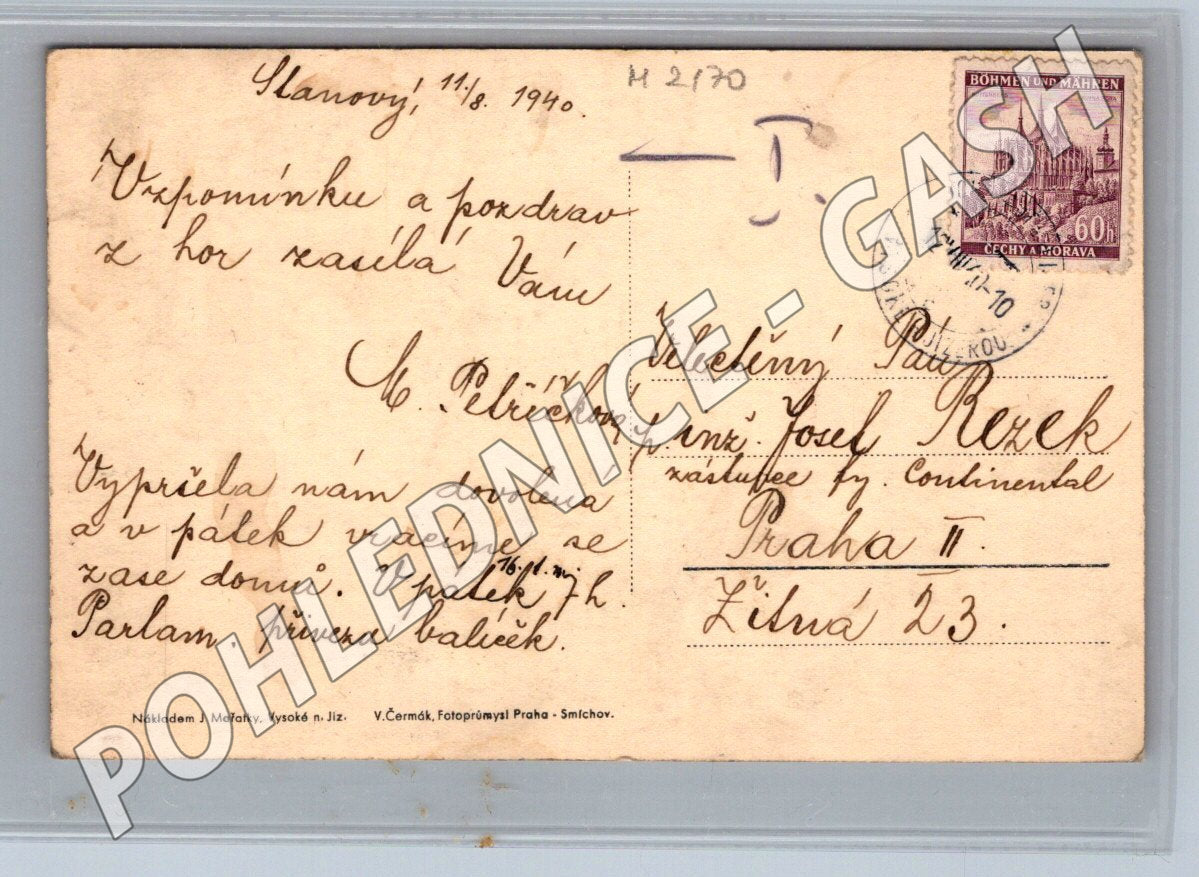 Stanový, 11./8. 1940.
M 2170
I.
Vzpomínku a pozdrav
z hor zasílá Vám
M. Petříčková
Vypršela nám dovolená
a v pátek vracíme se
zase domů. V pátek 7h.
16.
Parlam. přivezu balíček.
Nákladem J. Meřatky, Vysoké n. Jiz. V. Čermák, Fotoprůmysl Praha - Smíchov.
BÖHMEN UND MÄHREN
60h
ČECHY A MORAVA
Velectěný Pán
p. inž. Josef Rezek
zástupce fy. Continental
Praha II.
Žitná 23.
POHLEDNICE - GASH